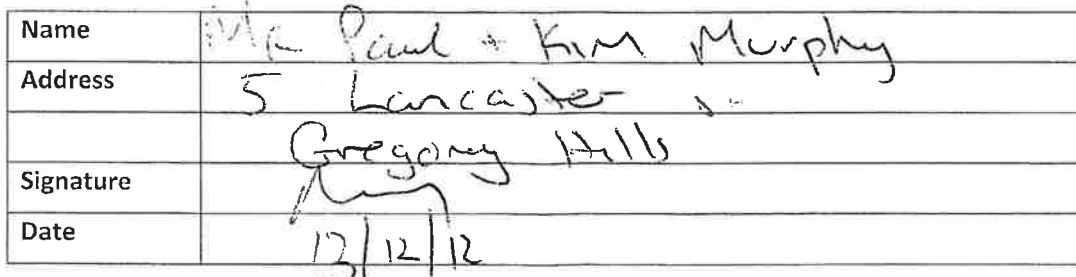 Name Mr Paul + Kim Murphy
Address 5 Lancaster
Gregory Hills
Signature
Date 13/12/12